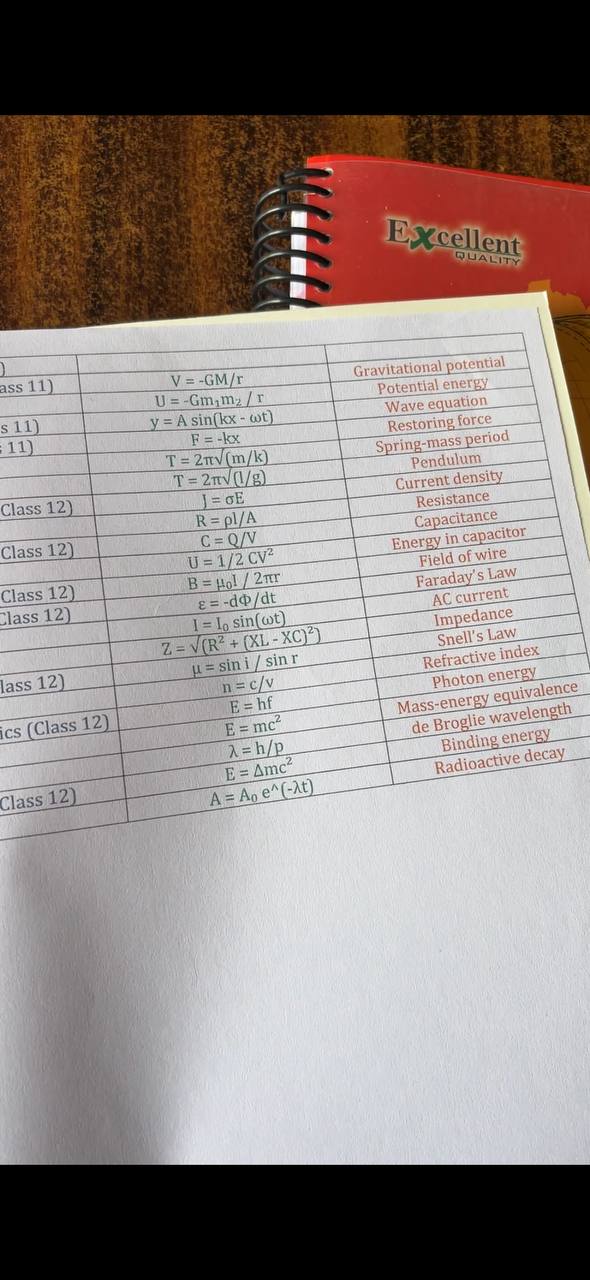 Excellent
QUALITY
)
ass 11) V = -GM/r Gravitational potential
U = -Gm₁m₂ / r Potential energy
s 11) y = A sin(kx - ωt) Wave equation
s 11) F = -kx Restoring force
T = 2π√(m/k) Spring-mass period
T = 2π√(l/g) Pendulum
Class 12) J = σE Current density
R = ρl/A Resistance
Class 12) C = Q/V Capacitance
U = 1/2 CV² Energy in capacitor
Class 12) B = μ₀I / 2πr Field of wire
Class 12) ε = -dΦ/dt Faraday's Law
I = I₀ sin(ωt) AC current
Z = √(R² + (XL - XC)²) Impedance
lass 12) μ = sin i / sin r Snell's Law
n = c/v Refractive index
ics (Class 12) E = hf Photon energy
E = mc² Mass-energy equivalence
λ = h/p de Broglie wavelength
Class 12) E = Δmc² Binding energy
A = A₀ e^(-λt) Radioactive decay